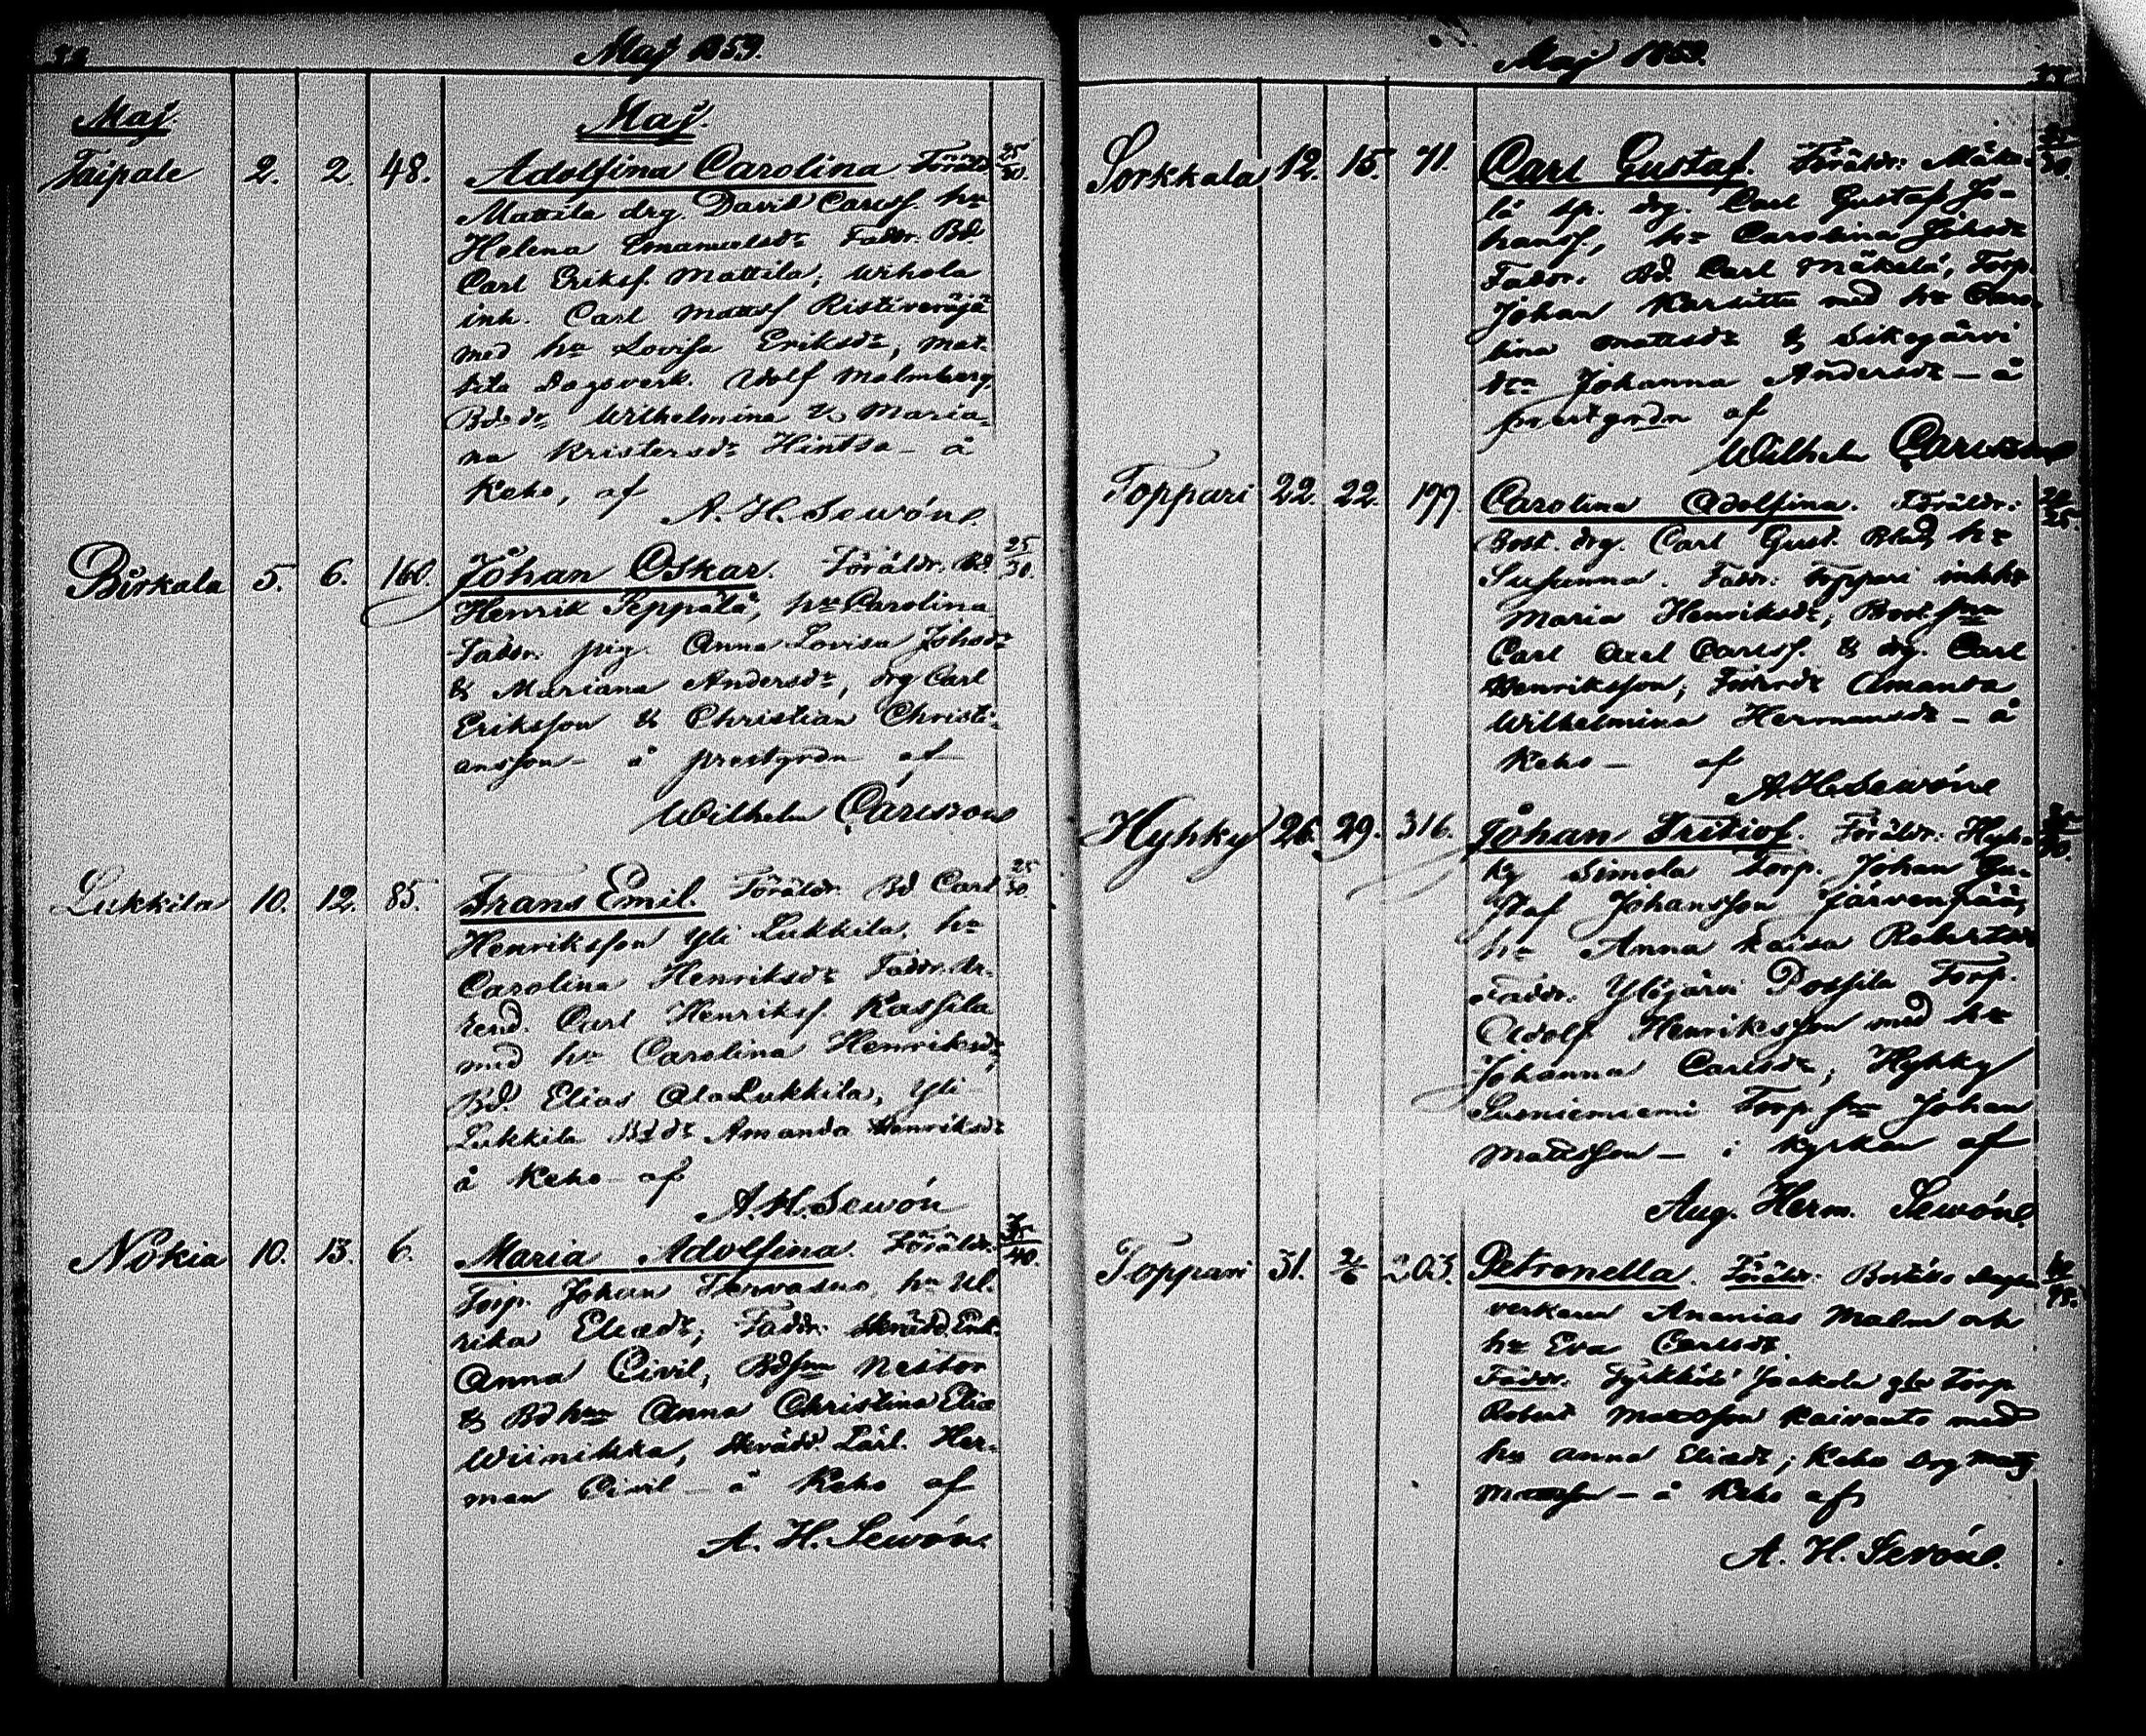 Maj 1859.
Maj. Maj.
Taipale 2. 2. 48. Adolfina Carolina. Föräldr. 25/30.
Mattila drg. David Carlsf. hn
Helena Emanuelsdr Faddr. Bd.
Carl Eriksf. Mattila, Wihola
inh. Carl Mattsf Ristiveräjä
med hn Lovisa Eriksdr, Mat-
tila Dagsverk. Adolf Malmberg
Bdedr Wilhelmina & Maria-
na Kristersdr Hintsa - å
Keho, af
A. H. Sewón.
Birkala 5. 6. 160. Johan Oskar. Föräldr. Bd 25/30.
Henrik Seppälä, hn Carolina
Faddr. pig. Anna Lovisa Johsdr
& Mariana Andersdr, drg Carl
Eriksson & Christian Christi-
ansson - å prestgrdn af
Wilhelm Carlsson
Lukkila 10. 12. 85. Frans Emil. Föräldr Bd Carl 25/30.
Henriksson Yli Lukkila, hn
Carolina Henriksdr Faddr. Ar-
rend. Carl Henriksf Kassila
med hn Carolina Henriksdr,
Bd. Elias AlaLukkila, Yli
Lukkila Bddr Amanda Henriksdr
å Keho af
A. H. Sewón
Nokia 10. 13. 6. Maria Adolfina. Föräldr. 35/40.
Torp. Johan Terwasuo, hn Ul-
rika Eliædr; Faddr. Skrädd. Enk.
Anna Civil, Bdsnn Nestor
& Bd hnn Anna Christina Eliæ
Wiinikka, Skrädd. Lärl. Her-
man Civil - å Keho af
A. H. Sewón.
Maj 1859.
Sorkkala 12. 15. 71. Carl Gustaf. Föräldr: Mäke- 25/30.
lä sp. drg. Carl Gustaf Jo-
hansf, hn Carolina Johsdr
Faddr. Bd. Carl Mäkelä, Torp.
Johan Karsitta med hn Caro-
lina Mattsdr & Sikojärvi
dtr Johanna Andersdr - å
prestgrdn af
Wilhelm Carlsson
Toppari 22. 22. 197. Carolina Adolfina. Föräldr:
Bost. drg. Carl Gust. Blad, hn
Susanna. Faddr. Toppari inhkr
Maria Henriksdr, Bost. snn
Carl Axel Carlsf. & drg. Carl
Henriksson, Amanda
Wilhelmina Hermansdr - å
Keho - af
A.H. Sewón
Hyhky 26. 29. 316. Johan Fritiof. Föräldr. Hyh-
ky Simola Torp. Johan Gu-
staf Johansson Järvenpää,
hn Anna Kaisa Robertsdr
Faddr. Ylöjärvi Possila Torp.
Adolf Henriksson med hn
Johanna Carlsdr, Hyhky
Susniemiemi Torp. snn Johan
Mattsson - i kyrkan af
Aug. Herm. Sewón.
Toppari 31. 2/6 203. Petronella. Föräldr. Dags-
verkaren Ananias Malm och
hn Eva Carlsdr.
Faddr. Tyrkkölö Jaakola Torp.
Robert Mattsson Kaivanto med
hn Anna Eliædr; Keho Drg Matts
Mattsson - å Keho af
A. H. Sewón.